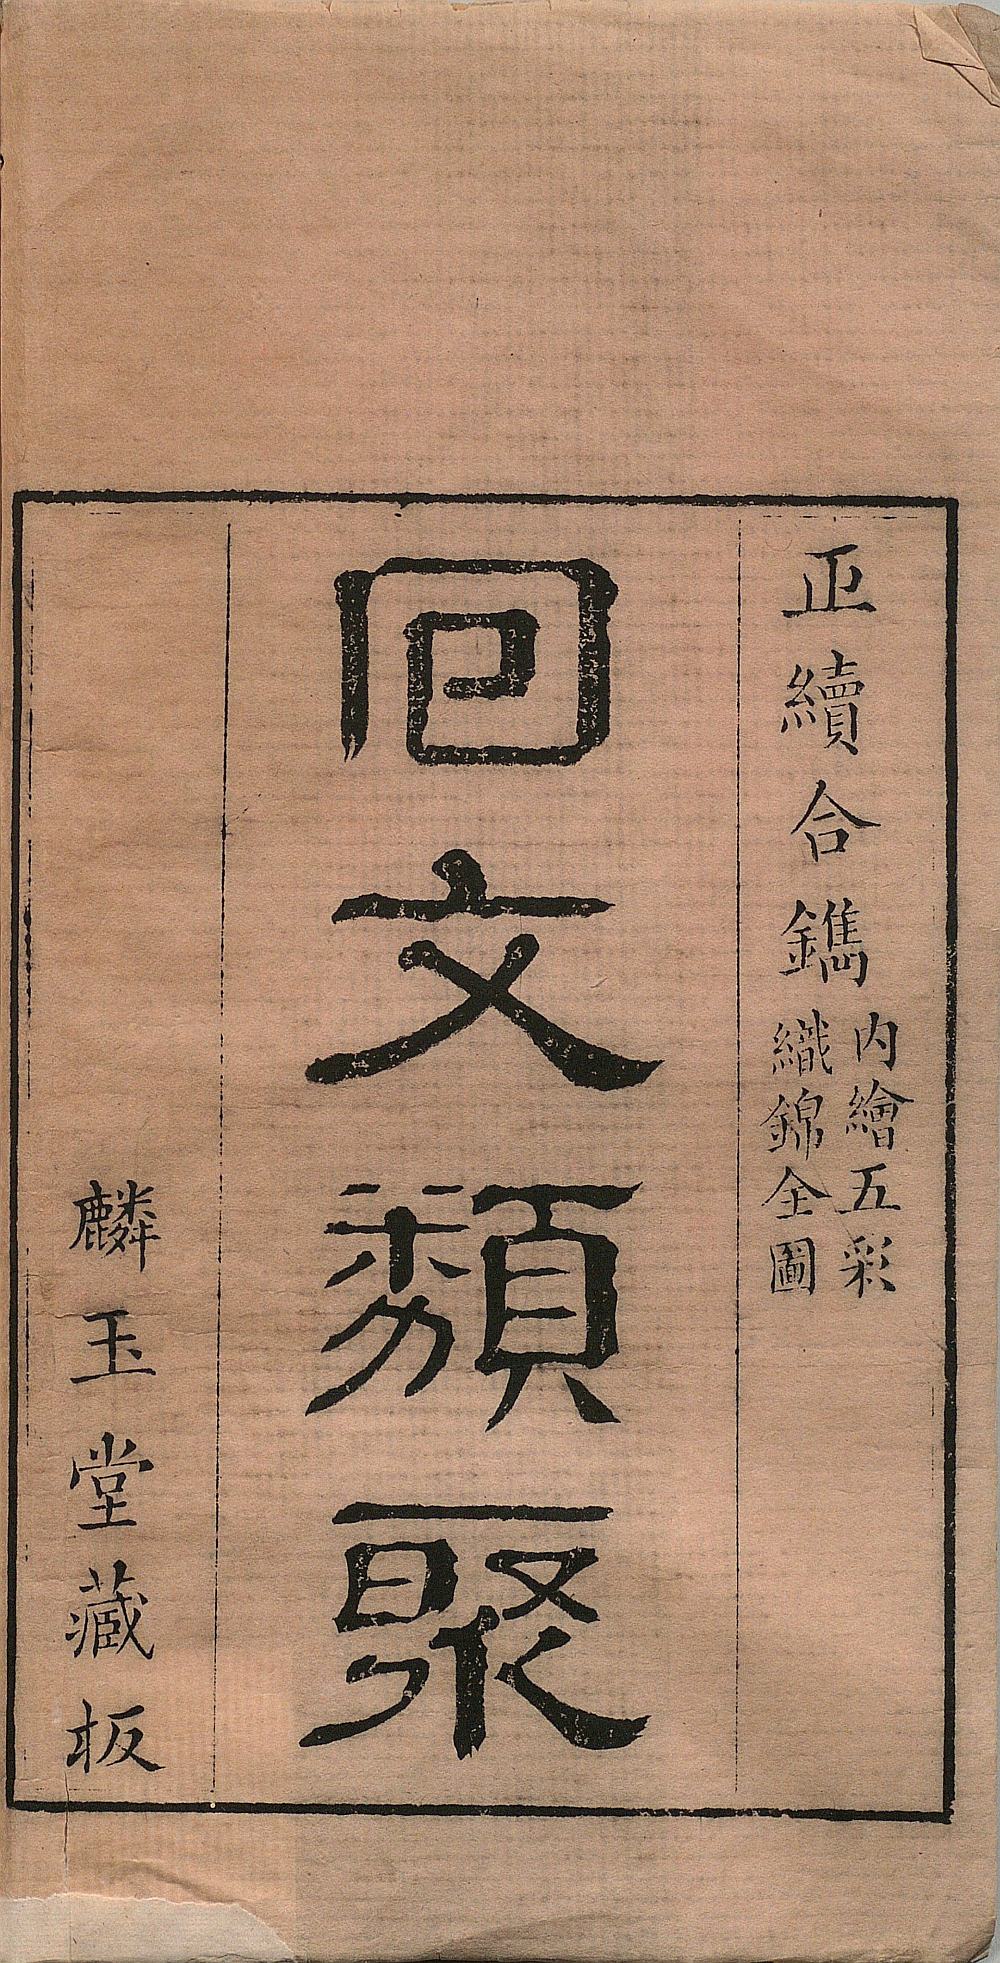 正續合鐫
内繪五彩
織錦全圖
回文類聚
麟玉堂藏板